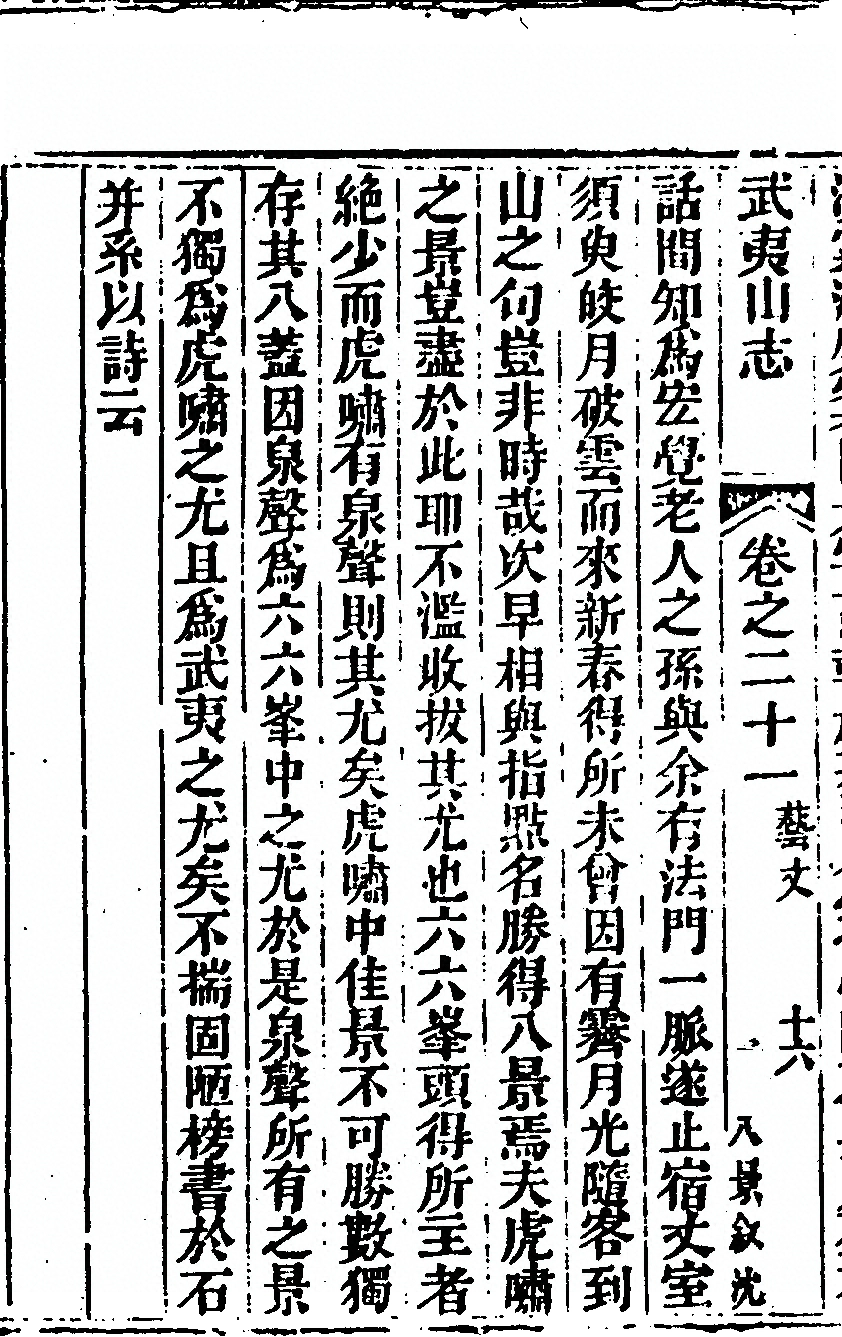 武夷山志 卷之二十一 藝文 十六 八景敘 沈
話間知為宏覺老人之孫與余有法門一脈遂止宿丈室
須臾皎月破雲而來新春得所未曾因有霽月光隨客到
山之句豈非時哉次早相與指點名勝得八景焉夫虎嘯
之景豈盡於此耶不濫收拔其尤也六六峯頭得所主者
絶少而虎嘯有泉聲則其尤矣虎嘯中佳景不可勝數獨
存其八蓋因泉聲為六六峯中之尤於是泉聲所有之景
不獨為虎嘯之尤且為武夷之尤矣不揣固陋榜書於石
并系以詩云